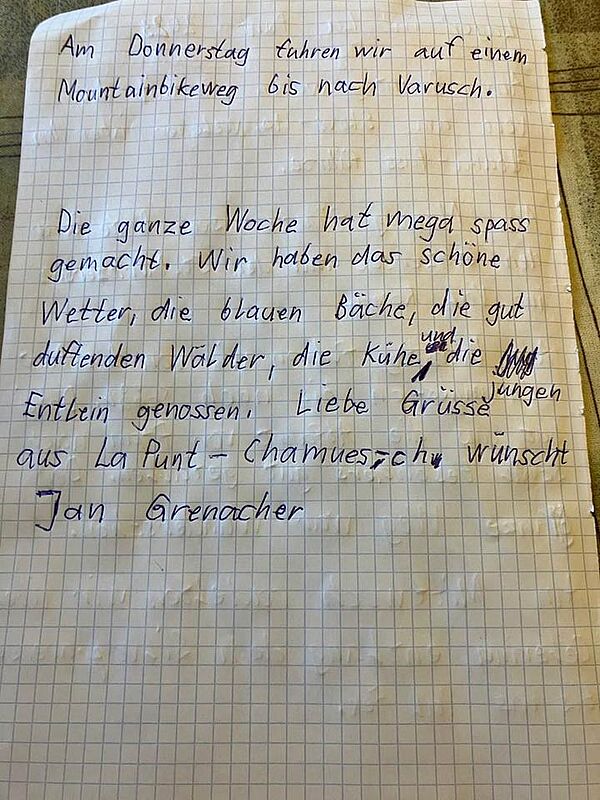 Am Donnerstag fuhren wir auf einem
Mountainbikeweg bis nach Varusch.
Die ganze Woche hat mega spass
gemacht. Wir haben das schöne
Wetter, die blauen Bäche, die gut
duftenden Wälder, die Kühe und die jungen
Entlein genossen. Liebe Grüsse
aus La Punt-Chamues-ch, wünscht
Jan Grenacher